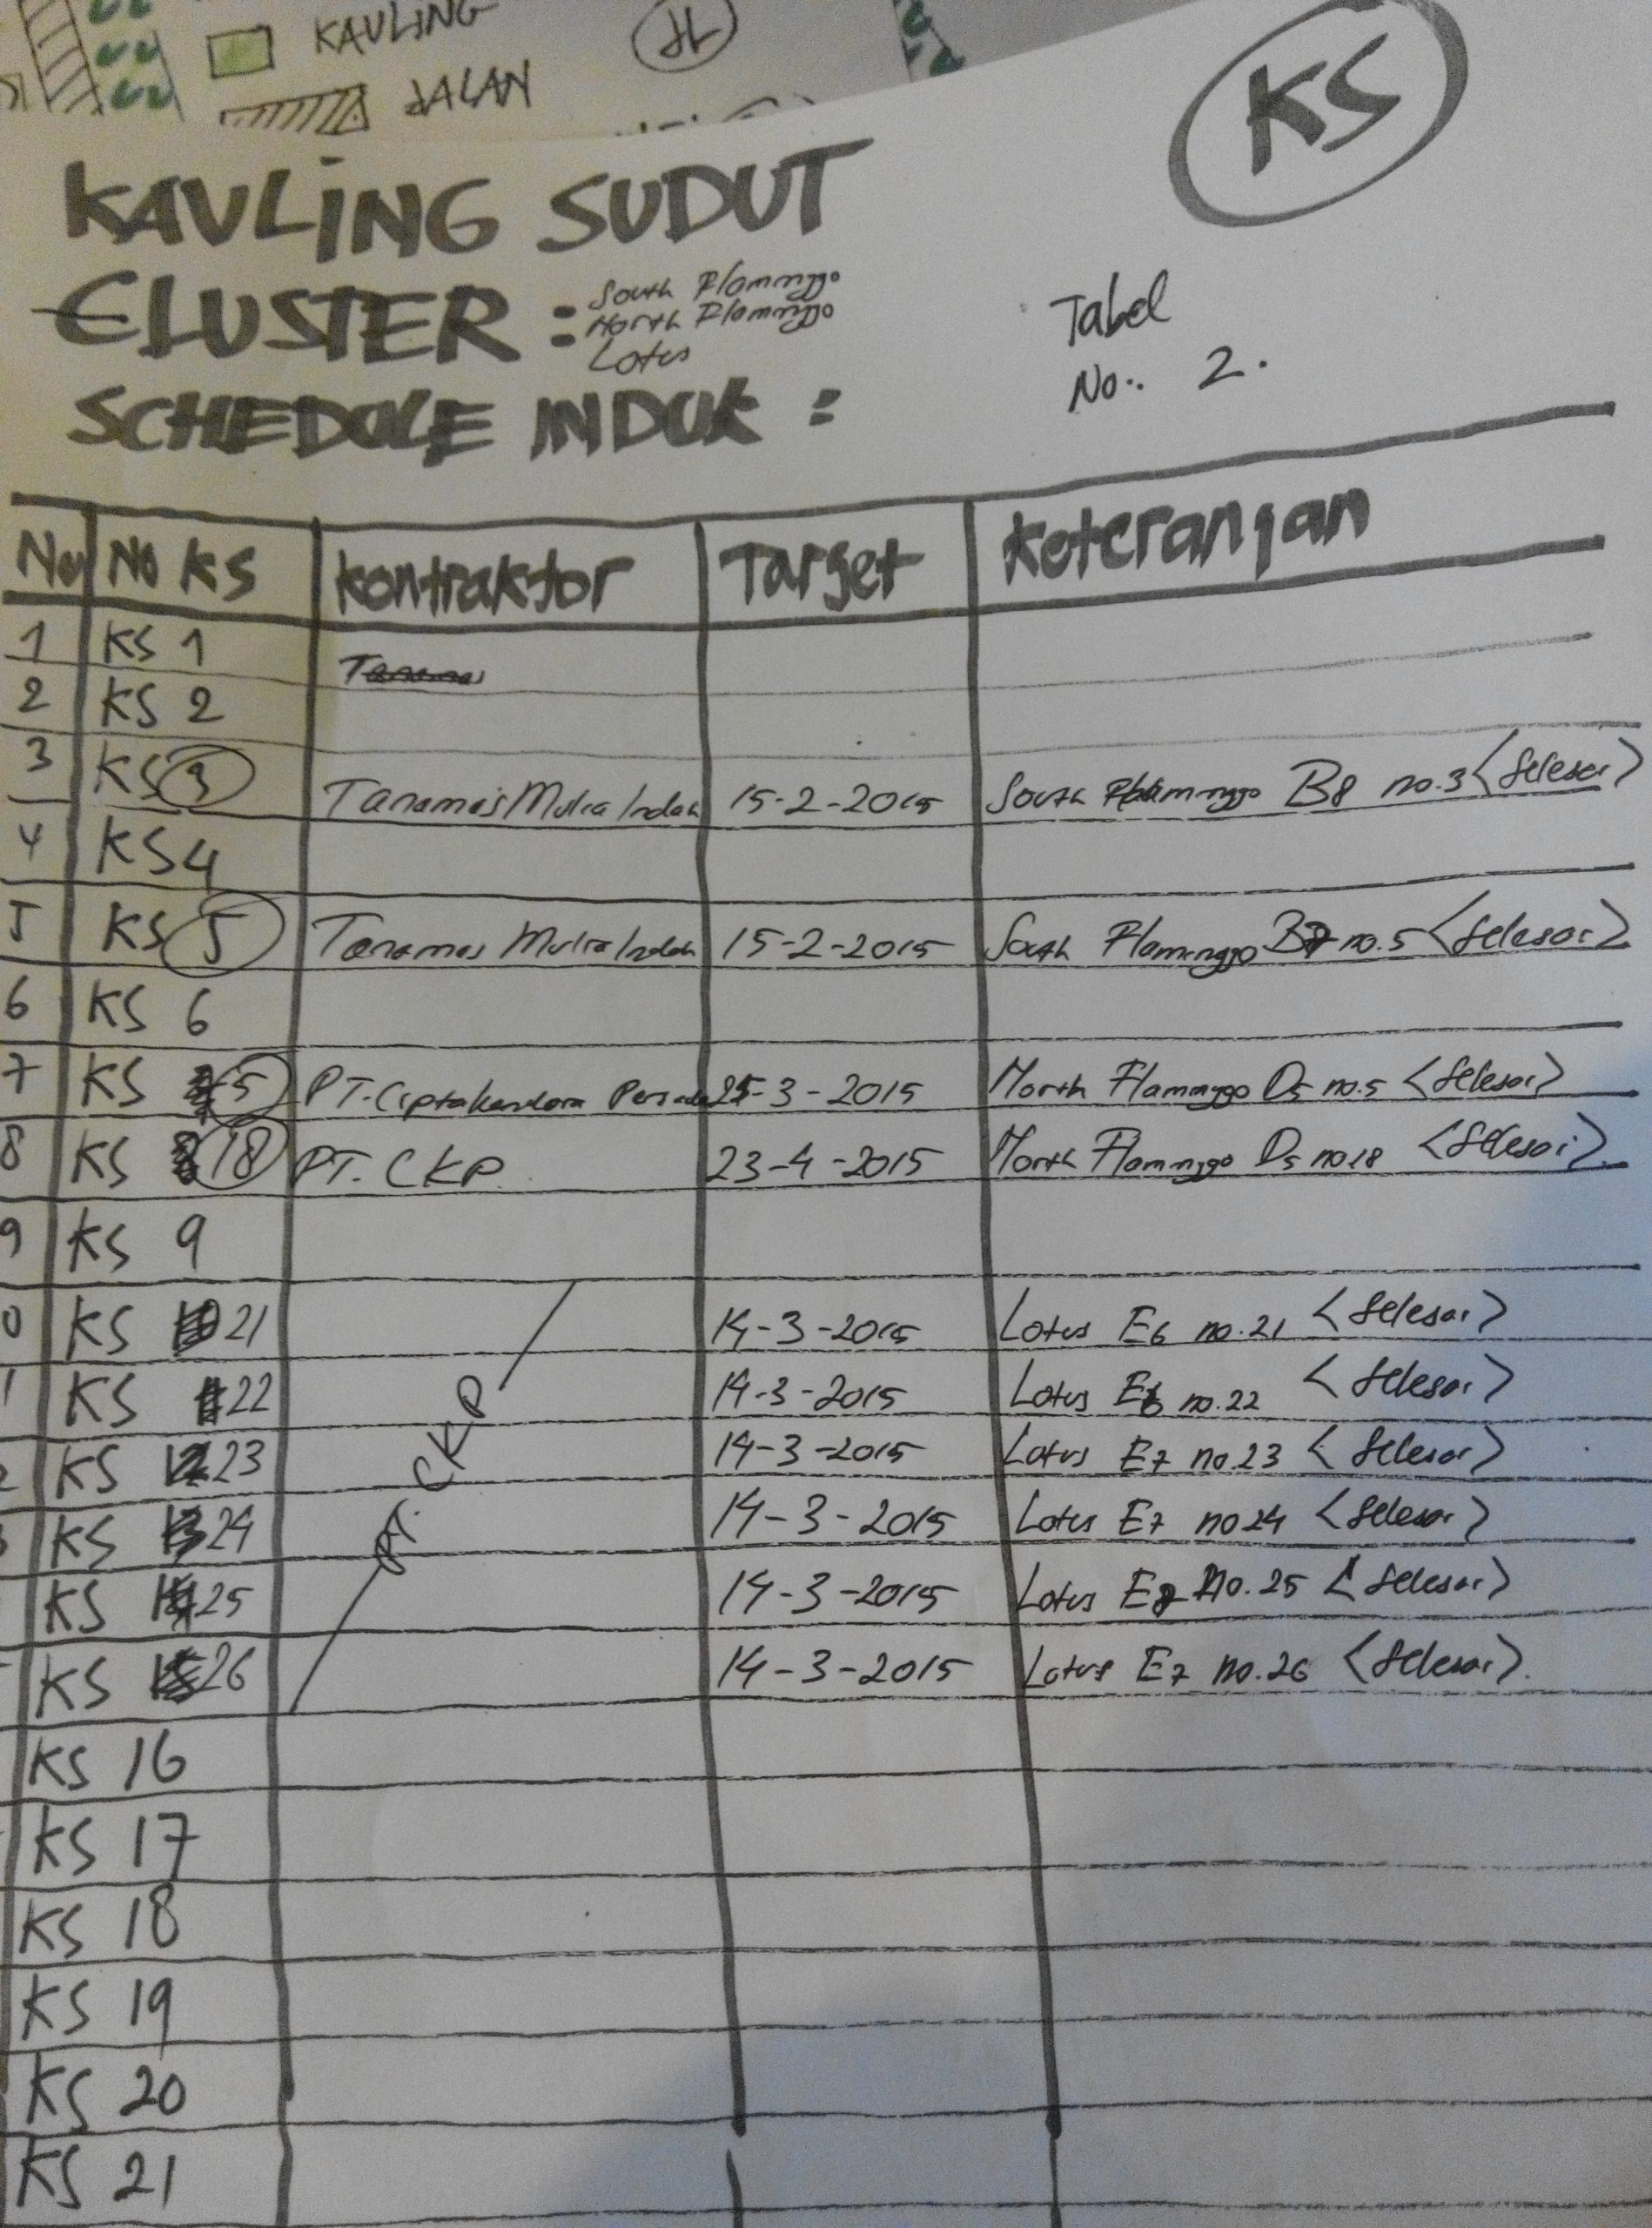 KAULING
JL
JALAN
KS
KAVLING SUDUT
CLUSTER : South Flaminggo
North Flaminggo
Lotus
SCHEDULE INDUK :
Tabel
No.. 2.
No No KS Kontraktor Target Keterangan
1 KS 1
2 KS 2
3 KS 3 Tanamas Mulia Indah 15-2-2015 South Flaminggo B8 no.3 <Selesai>
4 KS 4
5 KS 5 Tanamas Mulia Indah 15-2-2015 South Flaminggo B7 no.5 <Selesai>
6 KS 6
7 KS 5 PT. Ciptakandara Persada 25-3-2015 North Flaminggo D5 no.5 <Selesai>
8 KS 18 PT. CKP 23-4-2015 North Flaminggo D5 no 18 <Selesai>
9 KS 9
0 KS 21 14-3-2015 Lotus E6 no.21 <Selesai>
1 KS 22 14-3-2015 Lotus E6 no.22 <Selesai>
2 KS 23 PT. CKP 14-3-2015 Lotus E7 no.23 <Selesai>
3 KS 24 14-3-2015 Lotus E7 no 24 <Selesai>
KS 25 14-3-2015 Lotus E7 no.25 <Selesai>
KS 26 14-3-2015 Lotus E7 no.26 <Selesai>.
KS 16
KS 17
KS 18
KS 19
KS 20
KS 21